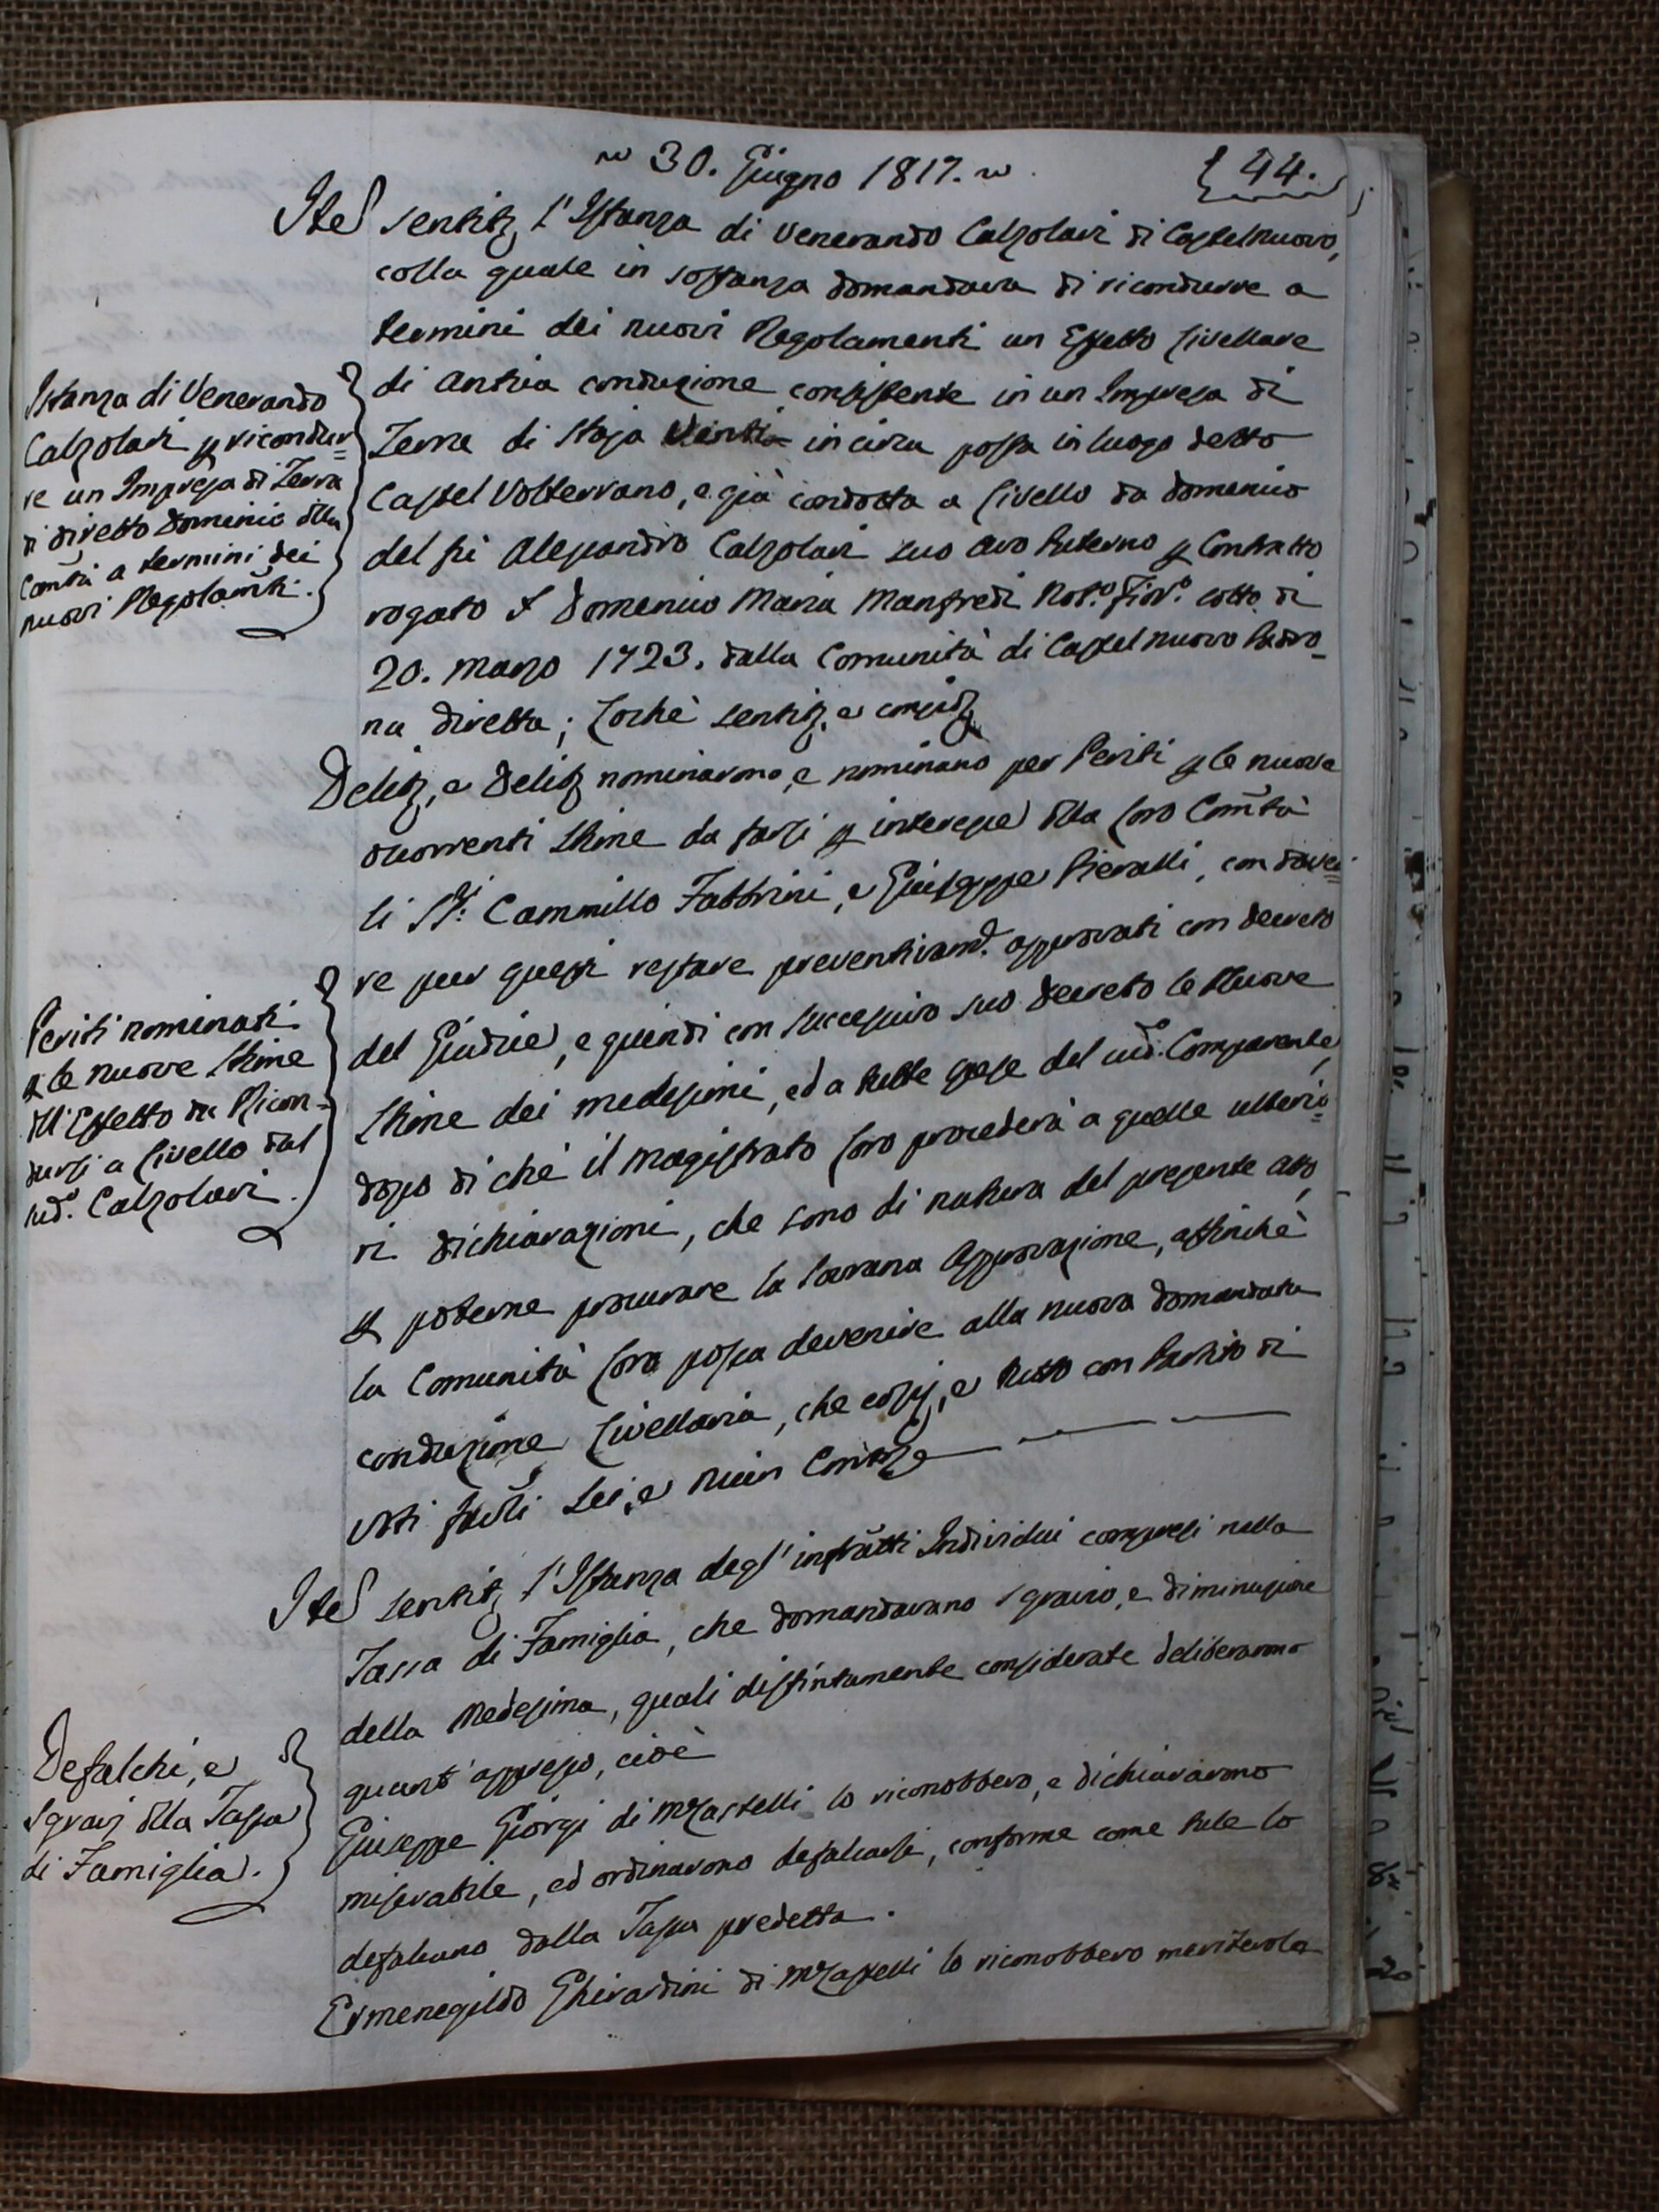 ~ 30. Giugno 1817. ~
44.
Ite Sentite l'Istanza di Venerando Calzolari di Castelnuovo,
colla quale in sostanza domandava di ricondurre a
termini dei nuovi Regolamenti un Effetto livellare
di antica conduzione consistente in un Impresa di
Terra di Staja Venti in circa posta in luogo detto
Castel Volterrano, e già condotta a livello da Domenico
del fù Alessandro Calzolari suo Avo Paterno p Contratto
rogato Domenico Maria Manfredi Not.º Fior.º sotto di
20. Marzo 1723. dalla Comunità di Castelnuovo Padro-
na diretta; Loché sentito, e consid
Delib, e Delib nominarono, e nominano per Periti p le nuove
occorrenti Stime da farsi p interesse dlla loro Comtà
li SS.ri Cammillo Fabbrini, e Giuseppe Pieralli, con dove=
re pur questi restare preventivam.e approvati con decreto
del Giudice, e quindi con successivo suo decreto le Nuove
Stime dei medesimi, ed a tutte spese del sud.º Comparente,
dopo di che il Magistrato loro procederà a quelle ulterio=
ri dichiarazioni, che sono di natura del presente atto,
p poterne procurare la Sovrana Approvazione, affinchè
la Comunità loro possa devenire alla nuova domandata
conduzione livellaria, che cosi, e tutto con Partito di
voti favli Sei, e niun Contro
Ite Sentite l'Istanza degl'infratti Individui compresi nella
Tassa di Famiglia, che domandavano sgravio, e diminuzione
della Medesima, quali distintamente considerate deliberarono
quant'appresso, cioè
Giuseppe Giorgi di MCastelli lo riconobbero, e dichiararono
miserabile, ed ordinarono defalcarsi, conforme come tale lo
defalcano dalla Tassa predetta.
Ermenegildo Ghirardini di MCastelli lo riconobbero meritevole
Istanza di Venerando
Calzolari p ricondur=
re un Impresa di Terra
di diretto Dominio dlla
Comtà a termini dei
nuovi Regolamti.
Periti nominati
p le nuove Stime
dll'Effetto da Ricon-
dursi a livello dal
sud.º Calzolari.
Defalchi, e
sgravj dlla Tassa
di Famiglia.